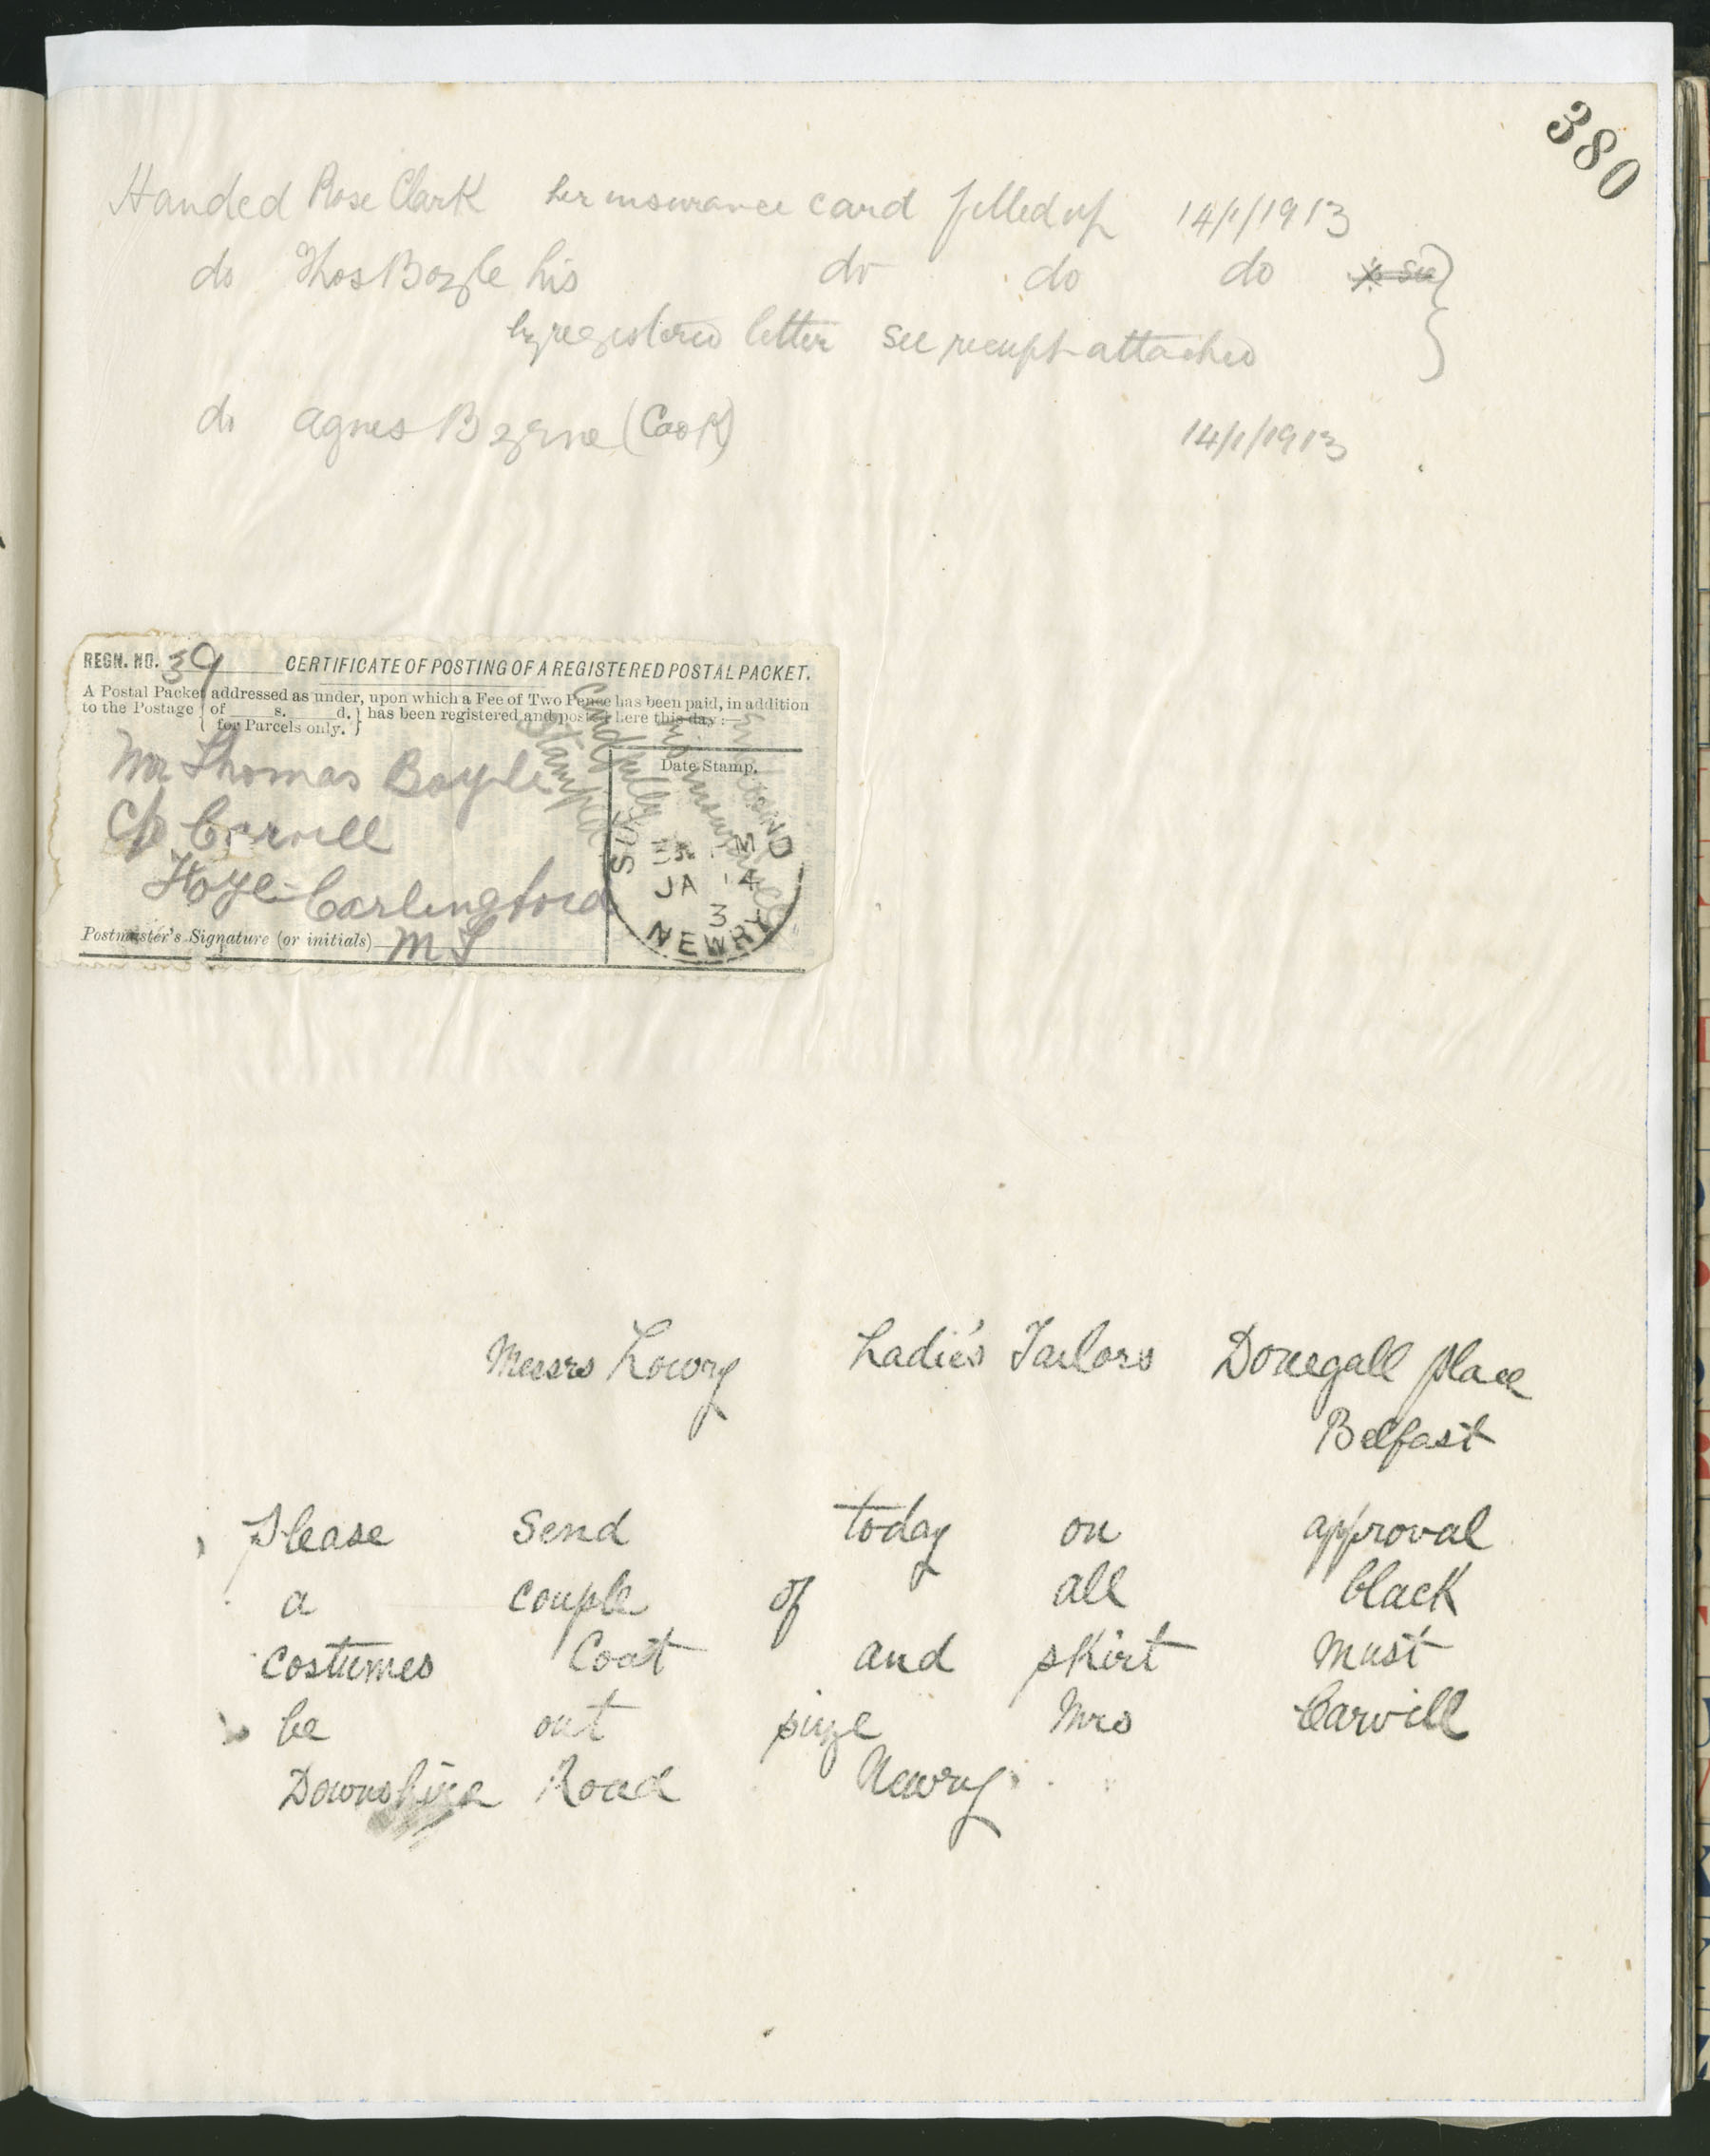 380
Handed Rose Clark her insurance card filled up 14/1/1913
do Thos Boyle his do do do
by registered letter see receipt attached
do Agnes Byrne (Cook) 14/1/1913
REGN. NO. 39 CERTIFICATE OF POSTING OF A REGISTERED POSTAL PACKET.
A Postal Packet addressed as under, upon which a Fee of Two Pence has been paid, in addition
to the Postage { of s. d. } has been registered and posted here this day :—
{ for Parcels only. }
Mr Thomas Boyle
Date Stamp.
c/o Carvill
Carlingford
JA 14
3
NEWRY
Postmaster's Signature (or initials)
his insurance
Card fully
Stamped
Messrs Lowry Ladie's Tailors Donegall place
Belfast
Please Send today on approval
a couple of all black
costumes Coat and skirt must
be out size Mrs Carvill
Downshire Road Newry